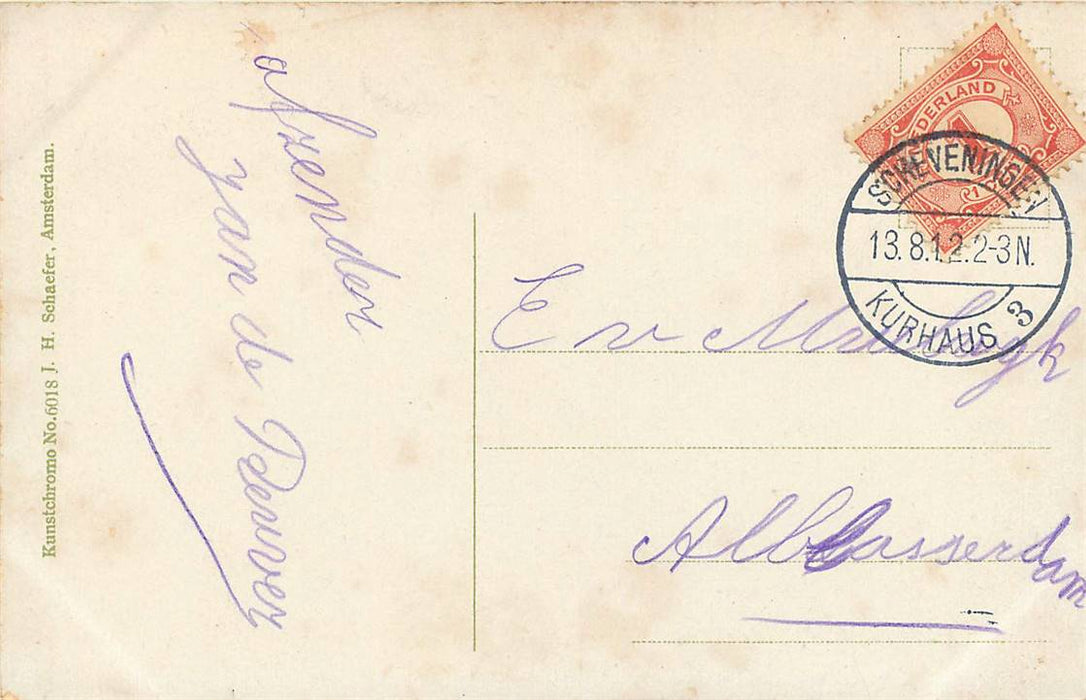 Kunstchromo No. 6018 J. H. Schaefer, Amsterdam.
afzender
Jan de
NEDERLAND
1
SCHEVENINGEN
13.8.12.2-3N.
KURHAUS 3
E v
Alblasserdam